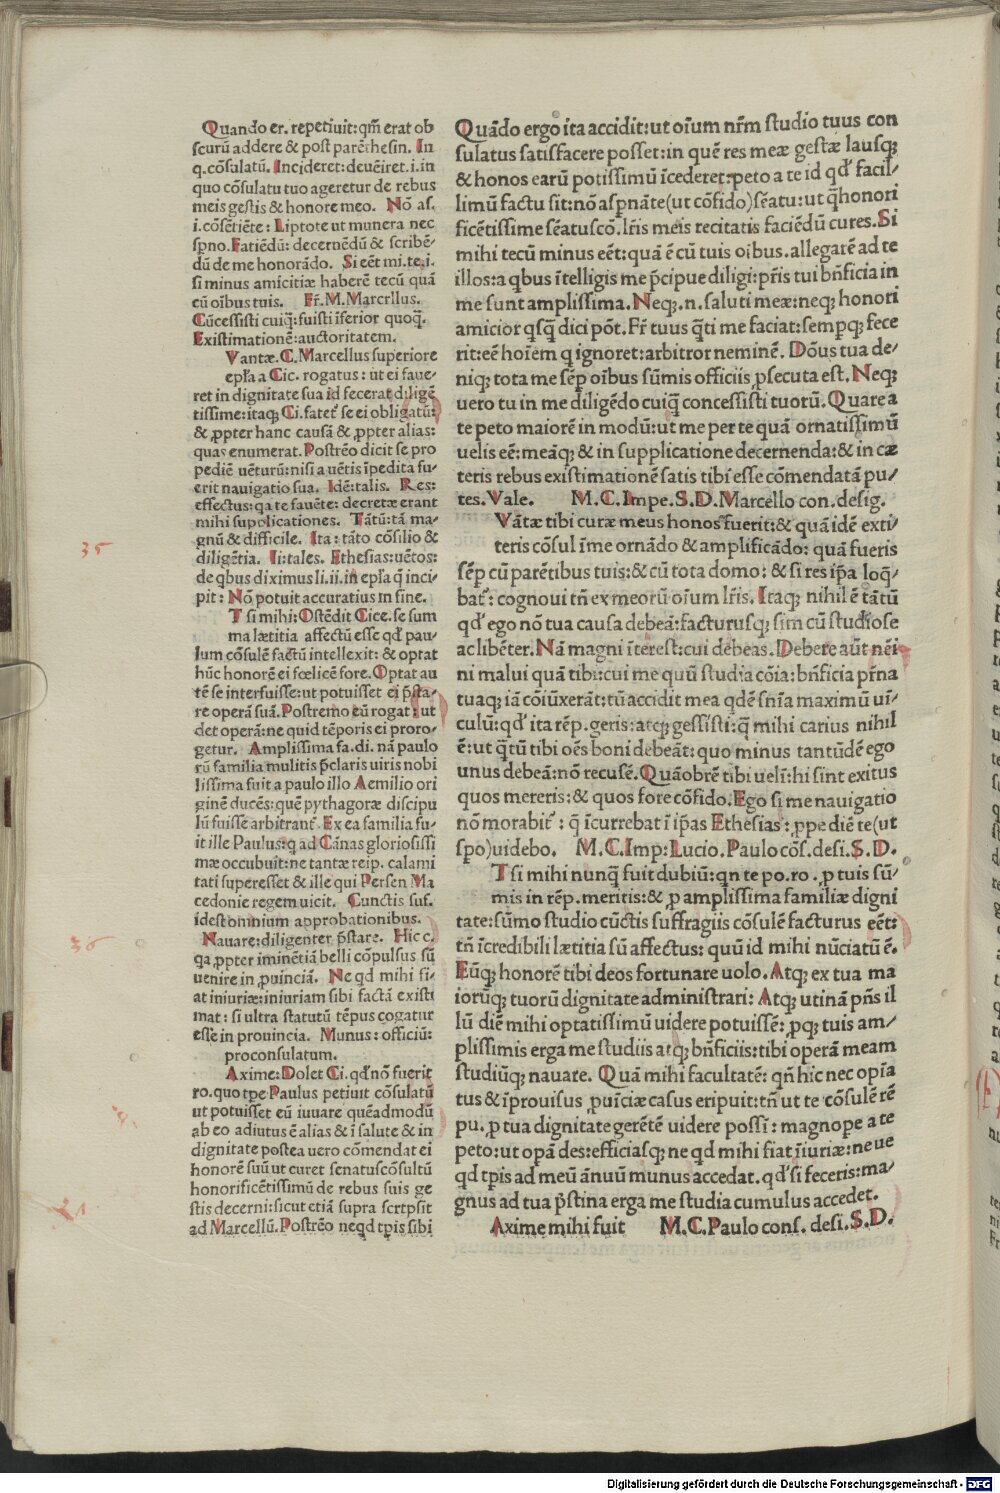 Quando er. repetiuit: qm̄ erat ob
scurū addere & post parēthesin. In
q. cōsulatū. Incideret: deuēiret .i. in
quo cōsulatu tuo ageretur de rebus
meis gestis & honore meo. Nō as.
i. cōsētiēte: Liptote ut munera nec
spno. Fatiēdū: decernēdū & scribē/
dū de me honorādo. Si eēt mi. te .i.
si minus amicitiæ haberē tecū quā
cū oībus tuis. Fr̄. M. Marcrllus.
Cūcessisti cuiq̄: fuisti īferior quoq̄.
Existimationē: auctoritatem.
Vantæ. C. Marcellus superiore
epl̄a a Cic. rogatus: ut ei faue/
ret in dignitate sua id fecerat diligē
tissime: itaq; Ci. fatet̄ se ei obligatū:
& ꝓpter hanc causā & ꝓpter alias:
quas enumerat. Postrēo dicit se pro
pediē uēturū: nisi a uētis īpedita fu/
erit nauigatio sua. Idē: talis. Res:
effectus: qa te fauēte: decretæ erant
mihi supolicationes. Tātū: tā ma/
gnū & difficile. Ita: tāto cōsilio &
diligētia. Ii: tales. Ethesias: uētos:
de qbus diximus li. ii. in epl̄a q̄ inci/
pit: Nō potuit accuratius in fine.
T si mihi: Ostēdit Cice. se sum
ma lætitia affectū esse qd̄ pau/
lum cōsulē factū intellexit: & optat
hūc honorē ei fœlicē fore. Optat au
tē se interfuisse: ut potuisset ei p̄sta/
re operā suā. Postremo eū rogat: ut
det operā: ne quid tēporis ei proro/
getur. Amplissima fa. di. nā paulo
rū familia mulitis p̄claris uiris nobi
lissima fuit a paulo illo Aemilio ori
ginē ducēs: quē pythagoræ discipu
lū fuisse arbitrant̄. Ex ea familia fu/
it ille Paulus: q ad Cānas gloriosissi
mæ occubuit: ne tantæ reip. calami
tati superesset & ille qui Persen Ma
cedonie regem uicit. Cunctis suf.
idest omnium approbationibus.
Nauare: diligenter p̄stare. Hic c.
qa ꝓpter iminētiā belli cōpulsus sū
uenire in ꝓuinciā. Ne qd mihi fi/
at iniuriæ: iniuriam sibi factā existi
mat: si ultra statutū tēpus cogatur
esse in prouincia. Munus: officiū:
proconsulatum.
Axime: Dolet Ci. qd̄ nō fuerit
ro. quo tpe Paulus petiuit cōsulatū
ut potuisset eū iuuare quēadmodū
ab eo adiutus ē alias & ī salute & in
dignitate postea uero cōmendat ei
honorē suū ut curet senatuscōsultū
honorificētissimū de rebus suis ge
stis decerni: sicut etiā supra scrtpsit
ad Marcellū. Postrēo neqd tpis sibi
Quādo ergo ita accidit: ut oīum nr̄m studio tuus con
sulatus satisfacere posset: in quē res meæ gestæ lausq;
& honos earū potissimū īcederet: peto a te id qd̄ facil/
limū factu sit: nō aspnāte (ut cōfido) sēatu: ut q̄ honori
ficētissime sēatuscō. lr̄is meis recitatis faciēdū cures. Si
mihi tecū minus eēt: quā ē cū tuis oibus. allegarē ad te
illos: a qbus ītelligis me p̄cipue diligi: pr̄is tui bn̄ficia in
me sunt amplissima. Neq; .n. saluti meæ: neq; honori
amicior qsq̄ dici pōt. Fr̄ tuus q̄ti me faciat: semp q; fece
rit: eē hoīem q ignoret: arbitror neminē. Dōus tua de/
niq; tota me sēp oībus sūmis officiis ꝓsecuta est. Neq;
uero tu in me diligēdo cuiq̄ concessisti tuorū. Quare a
te peto maiorē in modū: ut me per te quā ornatissimū
uelis eē: meāq; & in supplicatione decernenda: & in cæ
teris rebus existimationē satis tibi esse cōmendatā pu/
tes. Vale. M. C. Impe. S. D. Marcello con. desig.
Vātæ tibi curæ meus honos fuerit: & quā idē exti/
teris cōsul īme ornādo & amplificādo: quā fueris
sēp cū parētibus tuis: & cū tota domo: & si res ip̄a loq̄/
bat̄: cognoui tn̄ ex meorū oīum lr̄is. Itaq; nihil ē tātū
qd̄ ego nō tua causa debeā: facturusq; sim cū studiose
ac libēter. Nā magni īterest: cui debeas. Debere aūt nēi
ni malui quā tibi: cui me quū studia cōia: bn̄ficia pr̄na
tuaq; iā cōiūxerāt: tū accidit mea qdē sn̄ia maximū uī/
culū: qd̄ ita rēp. geris: atq; gessisti: q̄ mihi carius nihil
ē: ut q̄tū tibi oēs boni debeāt: quo minus tantūdē ego
unus debeā: nō recusē. Quāobrē tibi uelī: hi sint exitus
quos mereris: & quos fore cōfido. Ego si me nauigatio
nō morabit̄: q̄ īcurrebat ī ip̄as Ethesias: ꝓpe diē te (ut
spo) uidebo. M. C. Imp: Lucio. Paulo cōs. desi. S. D.
T si mihi nunq̄ fuit dubiū: qn te po. ro. ꝓ tuis sū/
mis in rēp. meritis: & ꝓ amplissima familiæ digni
tate: sūmo studio cūctis suffragiis cōsulē facturus eēt:
tn̄ īcredibili lætitia sū affectus: quū id mihi nūciatū ē.
Eūq; honorē tibi deos fortunare uolo. Atq; ex tua ma
iorūq; tuorū dignitate administrari: Atq; utinā pn̄s il
lū diē mihi optatissimū uidere potuissē: ꝓq; tuis am/
plissimis erga me studiis atq; bn̄ficiis: tibi operā meam
studiūq; nauare. Quā mihi facultatē: qn̄ hic nec opīa
tus & īprouisus ꝓuīciæ casus eripuit: tn̄ ut te cōsulē rē
pu. ꝓ tua dignitate gerētē uidere possī: magnope a te
peto: ut opā des: efficiasq; ne qd mihi fiat īiuriæ: neue
qd tpis ad meū ānuū munus accedat. qd̄ si feceris: ma/
gnus ad tua p̄stina erga me studia cumulus accedet.
Axime mihi fuit M. C. Paulo cons. desi. S. D.
35
36
Digitalisierung gefördert durch die Deutsche Forschungsgemeinschaft - DFG